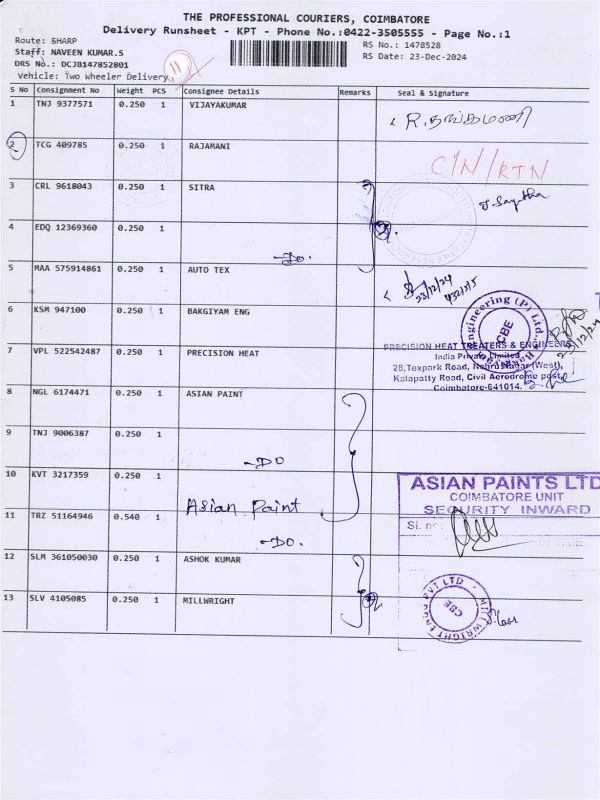 THE PROFESSIONAL COURIERS, COIMBATORE
Delivery Runsheet - KPT - Phone No.:0422-3505555 - Page No.:1
Route: SHARP
RS No.: 1478528
Staff: NAVEEN KUMAR.S
RS Date: 23-Dec-2024
DRS No.: DCJB147852801
Vehicle: Two Wheeler Delivery
11
S No Consignment No Weight PCS Consignee Details Remarks Seal & Signature
1 TNJ 9377571 0.250 1 VIJAYAKUMAR
R.தங்கமணி
2 TCG 409785 0.250 1 RAJAMANI
C/N/RTN
3 CRL 9618043 0.250 1 SITRA
4 EDQ 12369360 0.250 1
-Do.
5 MAA 575914861 0.250 1 AUTO TEX
23/12/24
6 KSM 947100 0.250 1 BAKGIYAM ENG
Engineering (P) Ltd.
CBE
7 VPL 522542487 0.250 1 PRECISION HEAT
PRECISION HEAT TREATERS & ENGINEERS
India Private Limited
28,Texpark Road, Nehru Nagar (West),
Kalapatty Road, Civil Aerodrome post,
Coimbatore-641014.
8 NGL 6174471 0.250 1 ASIAN PAINT
9 TNJ 9006387 0.250 1
-DO
10 KVT 3217359 0.250 1
Asian Paint
11 TRZ 51164946 0.540 1
-DO.
ASIAN PAINTS LTD
COIMBATORE UNIT
SECURITY INWARD
Sl. no:
TIME
12 SLM 361050030 0.250 1 ASHOK KUMAR
13 SLV 4105085 0.250 1 MILLWRIGHT
MILLWRIGHT ENGG PVT LTD
CBE